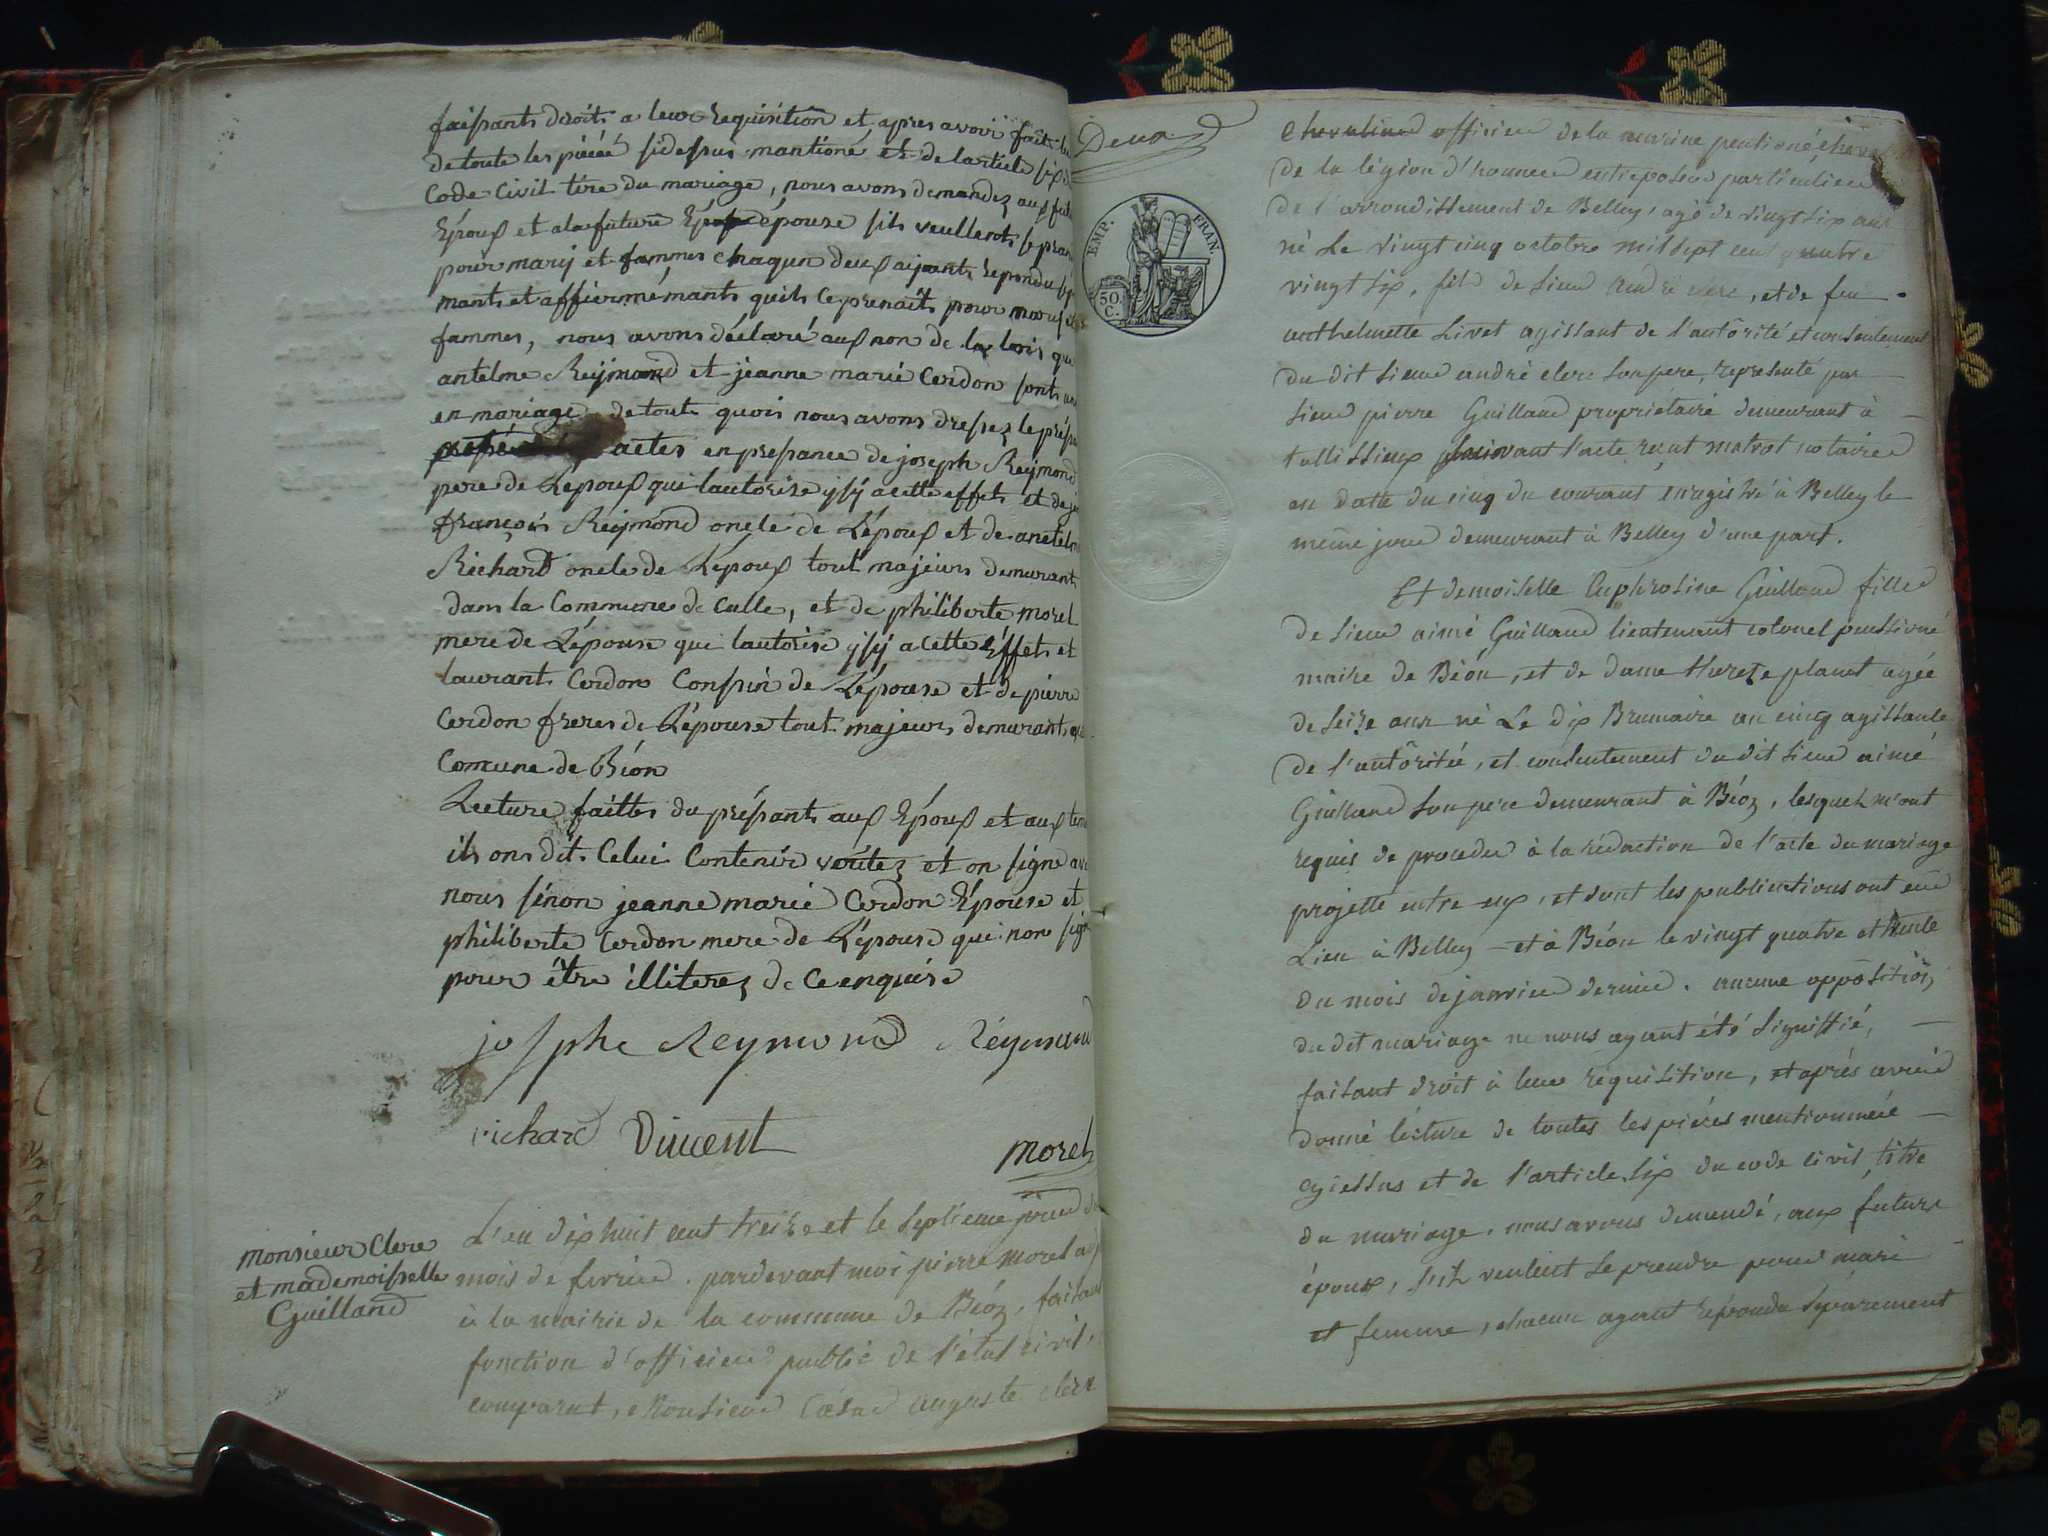 faisants droits a leur requisition et apres avoir fait
de toute les piéée sidessus mantioné et de lartiele six
Code Civil titre du mariage, nous avons demandez aux
Epoux et ala future épouse sils veullents se
pour marij et fammes chaqun deux aijants repondu
mants et affiermémants quils ce prenait pour
fammes, nous avons déclaré aux non de la lois que
antelme Reijmond et jeanne marie Cerdon sonts
en mariage de touts quois nous avons dressez le
actes en presance de joseph Reijmond
pere de Lepoux qui lautorise ysy acette effets et de
françois Reijmond oncle de Lépoux et de
Richard oncle de Lépoux tout majeurs demurant
dans la Commune de Culle, et de philiberte morel
mere de Lépouse qui lautorise ysy a cette Effets et
laurant Cerdon Conssin de Lépouse et de pierre
Cerdon freres de Lépouse tout majeurs demurants
Comune de Béon
Lecture faittes du présants aux Epoux et aux
ils ons dit Celui Contenir veritez et on signe
nous sinon jeanne marie Cerdon Epouse et
philiberte Cerdon mere de Lépouse qui non
pour être illiterez de ce enquise
josphe Reymond Réymond
richard Vincent
Morel
monsieur Clerc
et mademoisselle
Guilland
L'an dix huit cent treize et le septieme jour
mois de fevrier . pardevant moi pierre morel
à la mairie de la commune de Béoz, faisant
fonction d'officier public de l'état civil,
comparut, Monsieur Cæsar auguste clerc
Deux
EMP. FRAN.
50.
C.
officier de la marine pentioné
de la légion d'honneur entreposeur particulier
de l'arrondissement de Belley, agé de vingt six ans
né Le vingt cinq octobre mil sept cent quatre
vingt six, fils de sieur andré clerc, et de feu
anthelmette Livet agissant de l'autôrité et consentement
du dit sieur andré clerc son pere, représenté par
sieur pierre Guilland propriétaire demeurant à
tallissieux suivant l'acte reçut notaire
en datte du cinq du courant enregistré à Belley le
même jour demeurant à Belley d'une part.
Et demoiselle Euphrosine Guilland fille
de sieur aimé Guilland lieutenant colonel penssioné
maire de Béon, et de dame thereze planet agée
de seize ans né Le dix Brumaire an cinq agissante
de l'autôritée, et consentement du dit sieur aimé
Guilland son pere demeurant à Béoz, lesquels m'ont
requis de proceder à la rédaction de l'acte du mariage
projetté entre eux, et dont les publications ont eue
Lieu à Belley et à Béon le vingt quatre et trente
du mois de janvier dernier. aucune oppôsitiôn
du dit mariage ne nous ayant été signiffié,
faisant droit à leur réquisition, et aprés avoir
donné lécture de toutes les piéces mentionnée
cyiessus et de l'article six du code civil, titre
du mariage, nous avons demandé, aux future
époux, s'ils veulent se prendre pour mari
et femme, chacun ayant répondu séparement